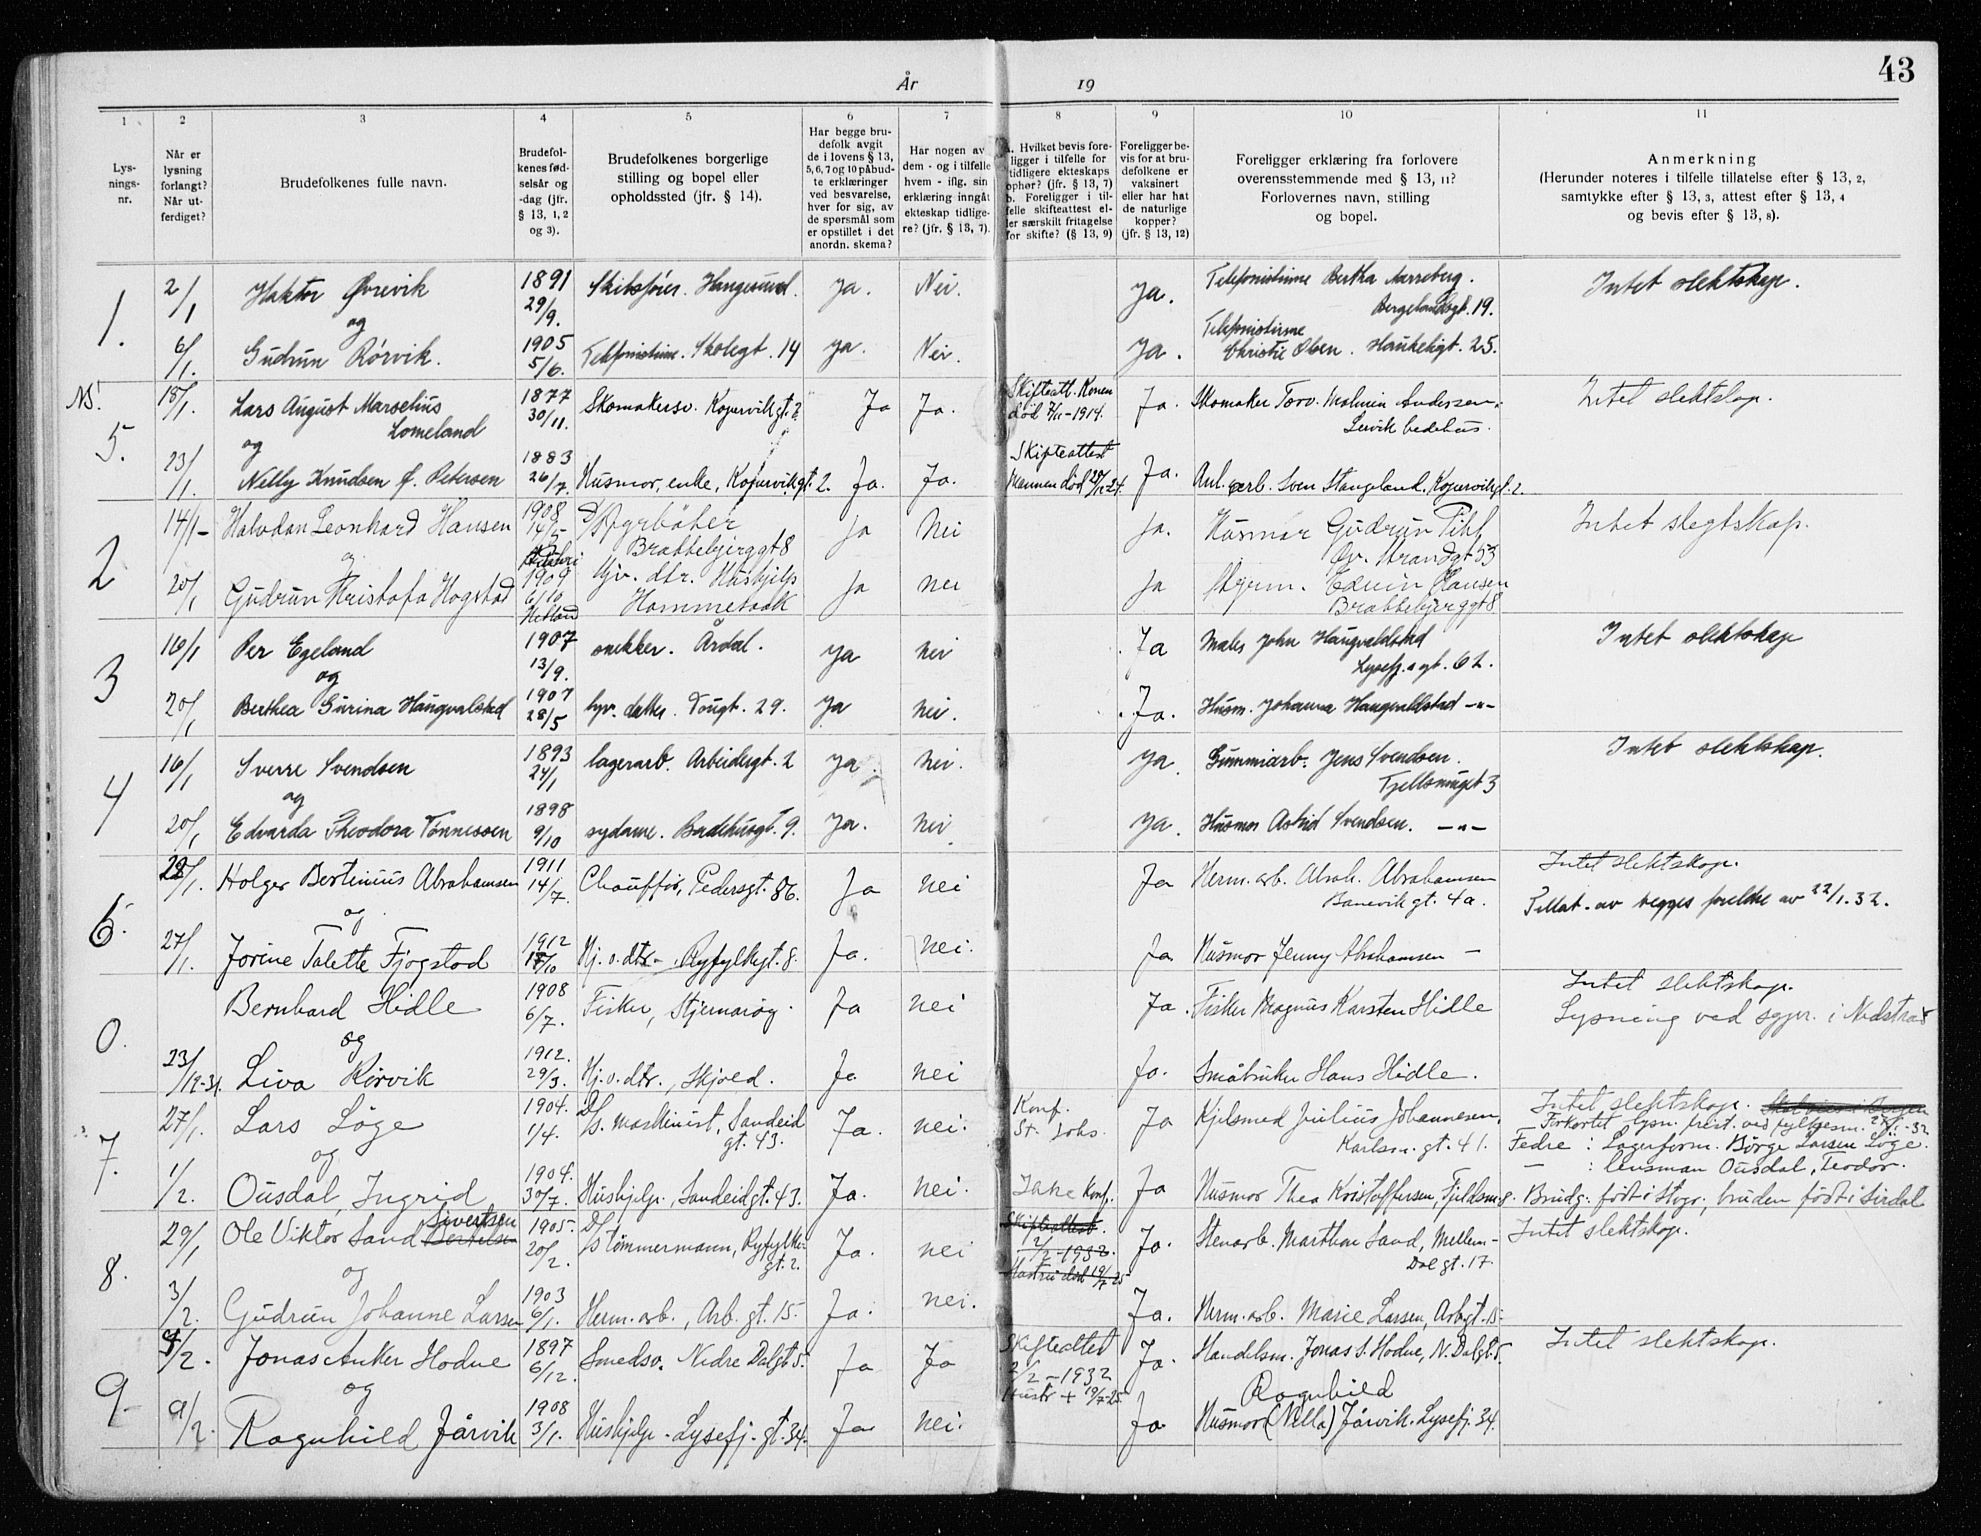 År 19
43
1 2 3 4 5 6 7 8 9 10 11
Lys-
nings-
nr.
Når er
lysning
forlangt?
Når ut-
ferdiget?
Brudefolkenes fulle navn.
Brudefol-
kenes fød-
selsår og
-dag (jfr.
§ 13, 1, 2
og 3).
Brudefolkenes borgerlige
stilling og bopel eller
opholdssted (jfr. § 14).
Har begge bru-
defolk avgit
de i lovens § 13,
5, 6, 7 og 10 påbud-
te erklæringer
ved besvarelse,
hver for sig, av
de spørsmål som
er opstillet i det
anordn. skema?
Har nogen av
dem - og i tilfelle
hvem - iflg. sin
erklæring inngått
ekteskap tidlige-
re? (jfr. § 13, 7).
Hvilket bevis fore-
ligger i tilfelle for
tidligere ekteskaps
ophør? (jfr. § 13, 7)
b. Foreligger i til-
felle skifteattest el-
ler særskilt fritagelse
for skifte? (§ 13, 9)
Foreligger be-
vis for at bru-
defolkene er
vaksinert
eller har hat
de naturlige
kopper?
(jfr. § 13, 12)
Foreligger erklæring fra forlovere
overensstemmende med § 13, 11?
Forlovernes navn, stilling
og bopel.
Anmerkning
(Herunder noteres i tilfelle tillatelse efter § 13, 2,
samtykke efter § 13, 3, attest efter § 13, 4
og bevis efter § 13, 8).
1. 2/1 Haktor Øvrevik 1891 29/9. Skibsfører. Haugesund. ja. Nei. ja. Telefonistinne Bertha Aarreberg. Bergelandsgt. 19. Intet slektskap.
og
6/1. Gudrun Rørvik. 1905 5/6. Telefonistinne. Skolegt. 14 ja. Nei. ja. Telefonistinne Christie Olsen. Haukeligt. 25.
NS!
5. 18/1. Lars August Marselius Lomeland 1877 30/11. Skomakersv. Kopervikgt. 2 Ja Ja. Skifteatt. Konen død -1914. Ja. Skomaker Torv. Malmin Andersen, Lervik bedehus. Intet slektskap.
og
23/1. Nelly Knudsen f. Petersen 1883 26/7. Husmor, enke, Kopervikgt. 2. Ja. Ja. Skifteattest Mannen død 24. Ja. Anl. arb. Sven Stangland. Kopervikgt. 2.
2 14/1 - Halvdan Leonhard Hansen 1908 14/5 D/S fyrbøter Brattebjerggt 8 Ja Nei Ja. Husmor Gudrun Øv. Strandgt 53 Intet slegtskap.
og
20/1 Gudrun Kristofa Hogstad 1909 6/10 Hetland Hjv. dtr. Hushjelp Hommesaak Ja nei Ja Styrm. Edvin Hansen Brattebjerggt 8
3 16/1 Per Egeland 1907 13/9. snekker. Årdal. ja nei Ja Maler John Haugvaldstad Lysefj. gt. 62. Intet slektskap
og
20/1 Berthea Gurina Haugvaldstad 1907 28/5 hjv. datter. Tougt. 29. ja nei. Ja. Husm. Johanna Haugvaldstad -"-
4 16/1 Sverre Svendsen 1893 24/1 lagerarb. Arbeidergt. 2 ja. nei. ja. Gummiarb. Jens Svendsen. Fjellsmuget 3 Intet slektskap.
og
20/1 Edvarda Theodora Tønnessen 1898 9/10 sydame. Badehusgt. 9. ja. nei ja. Husmor Astrid Svendsen. -"-
6. 22/1. Holger Bertinius Abrahamsen 1911 14/7. Chauffør, Pedersgt. 86. Ja nei Ja Herm. arb. Abrah. Abrahamsen Banevikgt. 4a. Intet slektskap.
Tillat. av begges foreldre av 22/1. 32.
og
27/1. Jorine Talette Fjogstad 1912 17/10 Hj. v. dtr. Ryfylkegt. 8. Ja. nei. Ja Husmor Jenny Abrahamsen -
0. Bernhard Hidle 1908 6/7. Fisker, Stjernarøy. Ja nei Ja. Fisker Magnus Karsten Hidle Intet slektskap.
Lysning ved sgpr. i Nedstrand
og
23/12-31. Liva Rørvik 1912. 29/3. Hj. v. dtr., Skjold. Ja nei Ja. Småbruker Hans Hidle.
7. 27/1. Lars Løge 1904. 1/4. D/S. maskinist, Sandeid gt. 43. Ja. nei. Konf. St. Johs. Ja Kjelsmed Julius Johannesen, Karlsm. gt. 41. Intet slektskap.
Forkortet lysn. frist. ved fylkesm. 27/1-32
Fedre: Lagerform. Børge Larsen Løge.
- : lensman Ousdal, Teodor.
og
1/2. Ousdal, Ingrid 1904. 30/7. Hushjelp, Sandeidgt. 43. Ja. nei. Konf. Ja Husmor Thea Kristoffersen, Fjeldsm. 8. Brudg. født i Stvgr, bruden født i Sirdal
8. 29/1 Ole Viktor Sand Bertelsen Sivertsen 1905. 20/2. D/S tømmermann, Ryfylke-gt. 2. Ja. nei Skifteattest 2/2-1932 Hustru død 19/7 25 Ja. Stenarb. Marthon Sand, Mellem-Dal gt. 17. Intet slektskap.
og
3/2. Gudrun Johanne Larsen 1903 6/1. Herm. arb., Arb. gt. 15. Ja. nei. Ja. Herm. arb. Marie Larsen, Arbgt. 15.
9. 4/2. Jonas Anker Hodne 1897 6/12. Smedsv. Nedre Dalgt 5. Ja Ja Skifteattest 2/2-1932 Hustr + 19/7-25. Ja. Handelsm. Jonas S. Hodne, N. Dalgt. 5. Intet slektskap.
og
9/2. Ragnhild Jårvik 1908 3/1. Hushjelp - Lysefj. - gt. 34. Ja nei. Ja Ragnhild Husmor (Nella) Jårvik. Lysefj. 34.